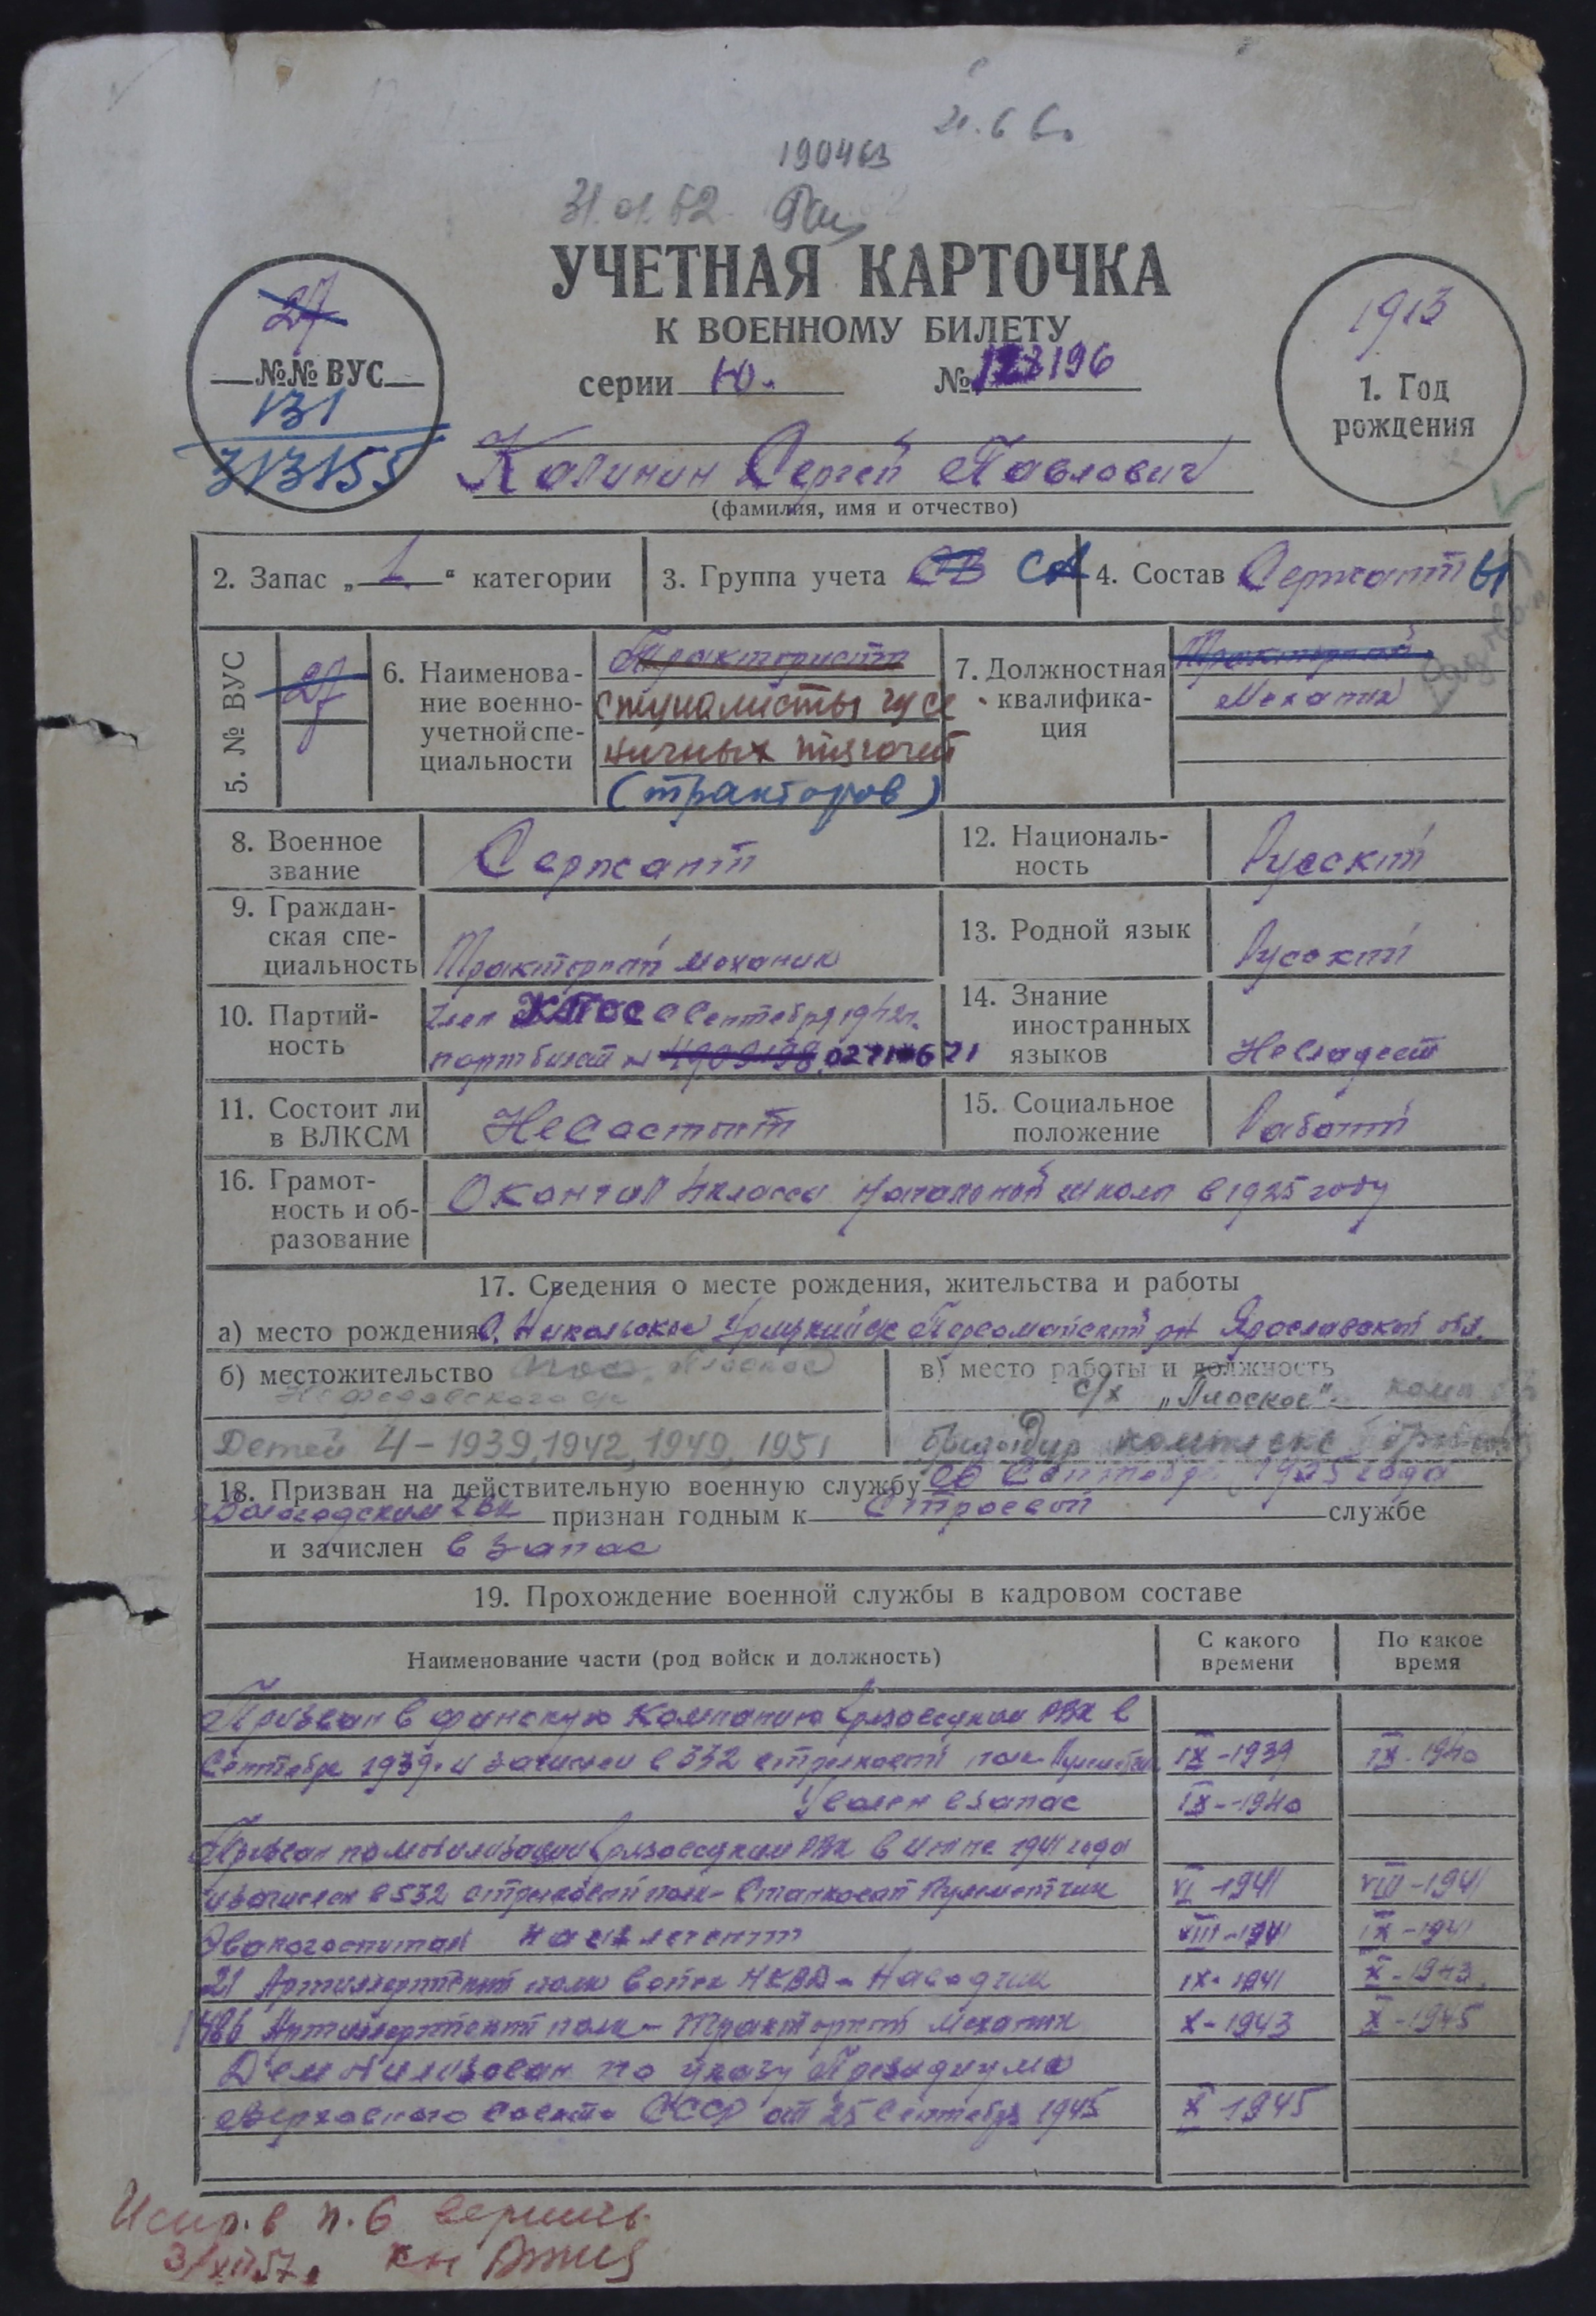 21.6 6.
190463
31.01.62
УЧЕТНАЯ КАРТОЧКА
К ВОЕННОМУ БИЛЕТУ
серии Ю. № 123196
27
№№ ВУС
131
313155
1913
1. Год
рождения
Калинин Сергей Павлович
(фамилия, имя и отчество)
2. Запас „1" категории
3. Группа учета СВ СА
4. Состав Сержанты
5. № ВУС
27
6. Наименова-
ние военно-
учетной спе-
циальности
Трактористы
специалисты гусе
ничных тягочей
(тракторов)
7. Должностная
квалифика-
ция
Тракторный
Механик
8. Военное
звание
Сержант
12. Националь-
ность
Русский
9. Граждан-
ская спе-
циальность
Тракторный механик
13. Родной язык
Русский
10. Партий-
ность
Член КПСС с Сентября 1942г.
партбилет №
14. Знание
иностранных
языков
Не владеет
11. Состоит ли
в ВЛКСМ
Не состоит
15. Социальное
положение
Рабочий
16. Грамот-
ность и об-
разование
Окончил 4 класса начальной школы в 1925 году
17. Сведения о месте рождения, жительства и работы
а) место рождения с. Никольское Первомайский р-н Ярославской обл.
б) местожительство пос. Плоское
в) место работы и должность
с/х „Плоское".
Детей 4 – 1939, 1942, 1949, 1951
бригадир
18. Призван на действительную военную службу Сентября 1935 года
Вологодским ГВК признан годным к Строевой службе
и зачислен в запас
19. Прохождение военной службы в кадровом составе
Наименование части (род войск и должность)
С какого
времени
По какое
время
Призван в финскую компанию Грязовецким РВК в
Сентябре 1939г. и зачислен в 532 стрелковый полк Пулеметчик IX-1939 IX-1940
Уволен в запас IX-1940
Призван по мобилизации Грязовецким РВК в июне 1941 года
и зачислен в 532 стрелковый полк – Станковый Пулеметчик VI-1941 VIII-1941
Эвакогоспиталь на излечении VIII-1941 IX-1941
21 Артиллерийский полк войск НКВД – Наводчик IX-1941 X-1943
1486 Артиллерийский полк – Тракторный механик X-1943 X-1945
Демобилизован по указу Президиума
Верховного Совета СССР от 25 Сентября 1945 X 1945
Испр. в п. 6 верить.
3/XII 57г.